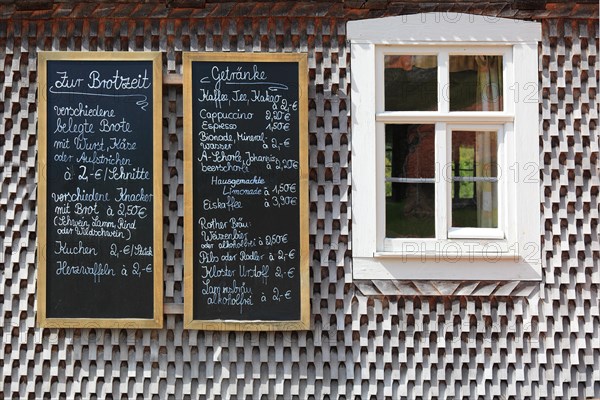 Zur Brotzeit
verschiedene
belegte Brote
mit Wurst, Käse
oder Aufstrichen
à 2,-€/Schnitte
verschiedene Knacker
mit Brot à 2,50€
(Schwein, Lamm, Rind
oder Wildschwein)
Kuchen 2,-€/Stück
Herzwaffeln à 2,-€
Getränke
Kaffee, Tee, Kakao
à 2,-€
Cappuccino 2,20€
Espresso 1,50€
Bionade, Mineral-
wasser à 2,-€
A-Schorle, Johannis-
beerschorle à 2,20€
Hausgemachte
Limonade à 1,50€
Eiskaffee à 3,90€
Rother Bräu
Weizenbier
oder alkoholfrei à 2,50€
Pils oder Radler à 2,-€
Kloster Urstoff à 2,-€
alkoholfrei à 2,-€